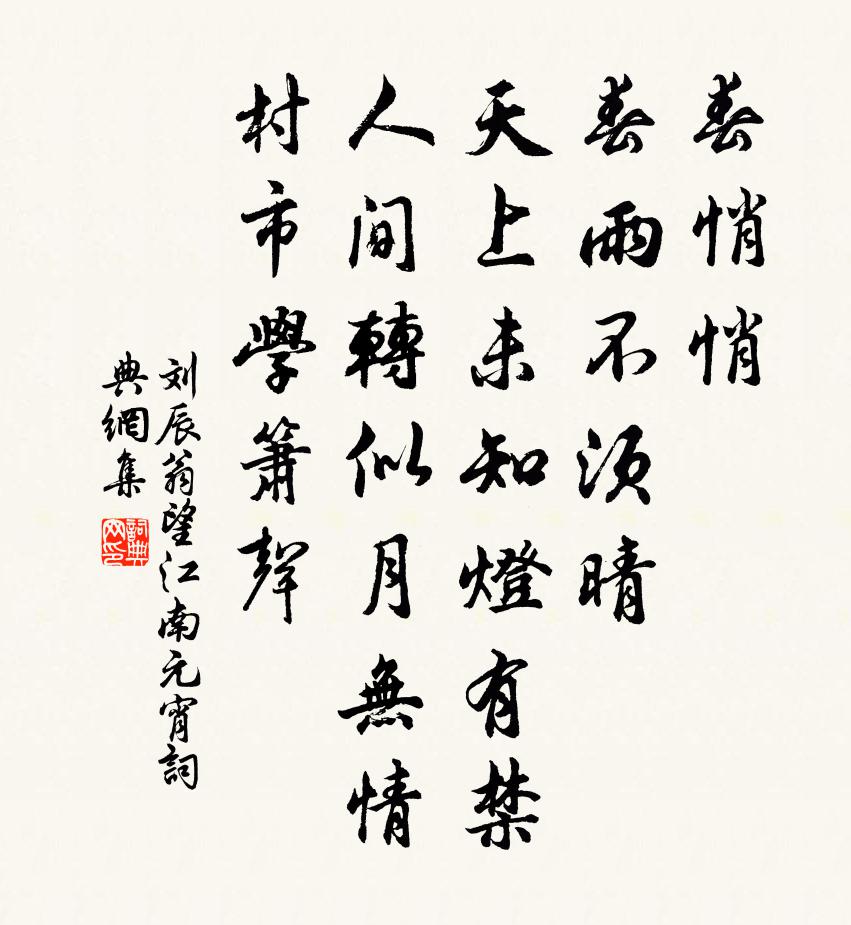 春悄悄
春雨不須晴
天上未知燈有禁
人間轉似月無情
村市學簫聲
刘辰翁望江南元宵詞
典網集
詞典网印